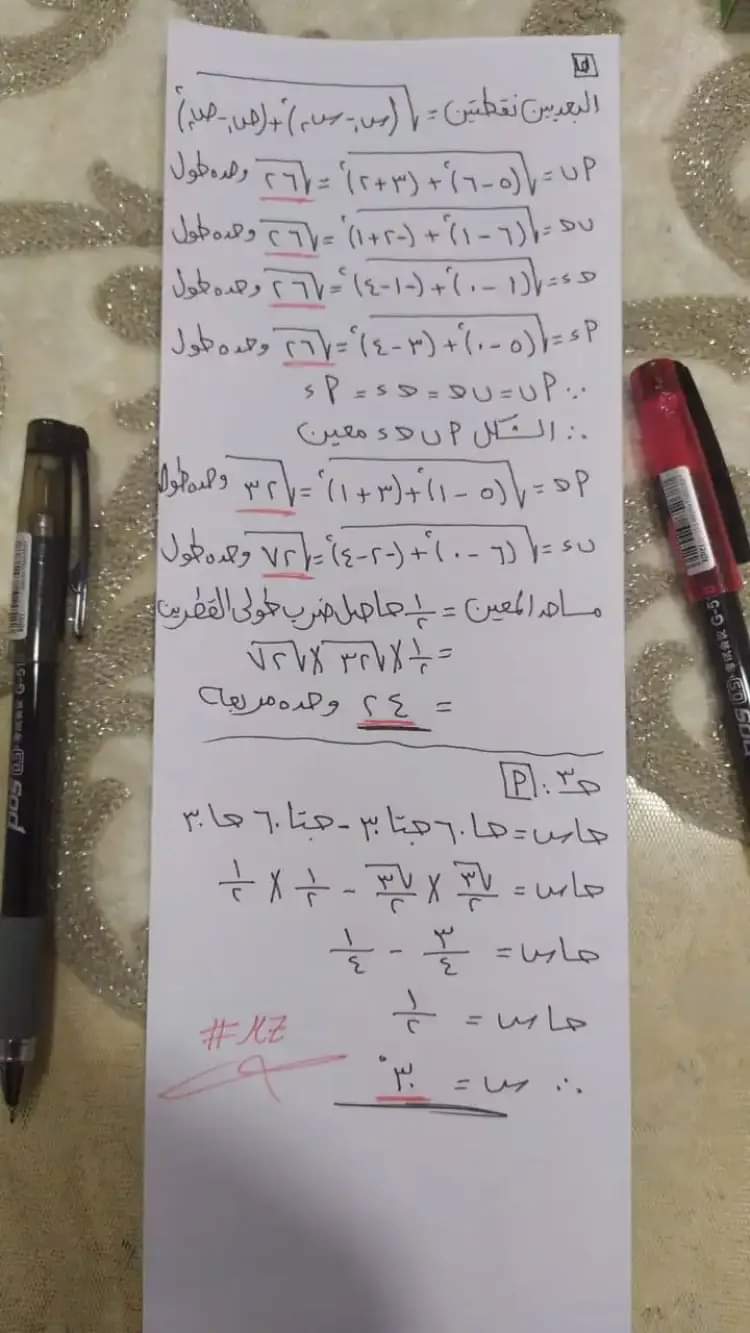 ب
البعد بين نقطتين = √(س₁-س₂)²+(ص₁-ص₂)²
أب = √(٥-٦)²+(٣+٢)² = √٢٦ وحده طول
ب ح = √(٦-١)²+(-٢+١)² = √٢٦ وحده طول
ح د = √(١-٠)²+(-١-٤)² = √٢٦ وحده طول
أد = √(٥-٠)²+(٣-٤)² = √٢٦ وحده طول
∵ أب = ب ح = ح د = أد
∴ الشكل أ ب ح د معين
أح = √(٥-١)²+(٣+١)² = √٣٢ وحده طول
ب د = √(٦-٠)²+(-٢-٤)² = √٧٢ وحده طول
مساحه المعين = ١/٢ حاصل ضرب طولى القطرين
= ١/٢ × √٣٢ × √٧٢
= ٢٤ وحده مربعه
حـ٣: أ
حا س = حا ٦٠ حتا ٣٠ - حتا ٦٠ حا ٣٠
حا س = √٣/٢ × √٣/٢ - ١/٢ × ١/٢
حا س = ٣/٤ - ١/٤
حا س = ١/٢
∴ س = ٣٠°
#MZ